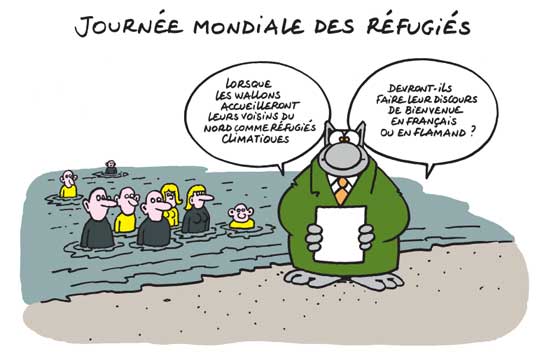 JOURNÉE MONDIALE DES RÉFUGIÉS
LORSQUE
LES WALLONS
ACCUEILLERONT
LEURS VOISINS DU
NORD COMME RÉFUGIÉS
CLIMATIQUES
DEVRONT-ILS
FAIRE LEUR DISCOURS
DE BIENVENUE
EN FRANÇAIS
OU EN FLAMAND ?